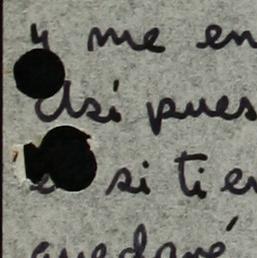 y me en
Asi pues
si tien
quedaré